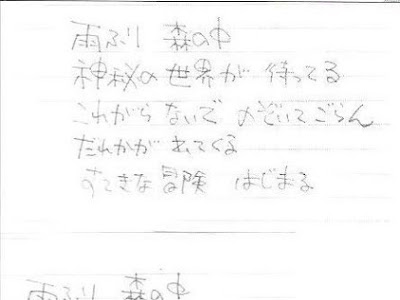 雨ふり 森の中
神秘の世界が 待ってる
こわがらないで のぞいてごらん
だれかが やってくる
すてきな冒険 はじまる
雨ふり 森の中